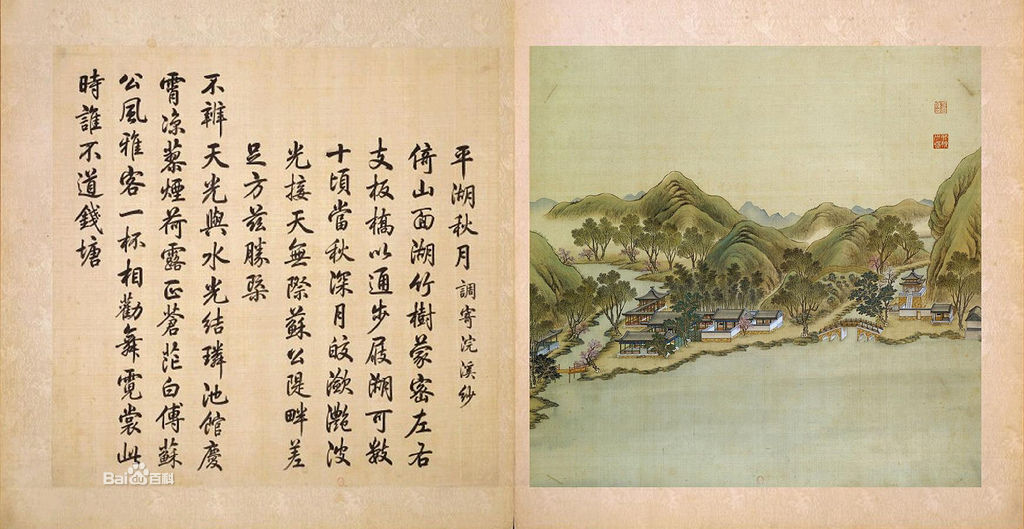 平湖秋月 調寄浣溪紗
倚山面湖竹樹蒙密左右
支板橋以通步屐湖可數
十頃當秋深月皎瀲灩波
光接天無際蘇公隄畔差
足方茲勝槩
不辨天光與水光結璘池館慶
霄涼蓼煙荷露正蒼茫白傅蘇
公風雅客一杯相勸舞霓裳此
時誰不道錢塘
Baidu百科